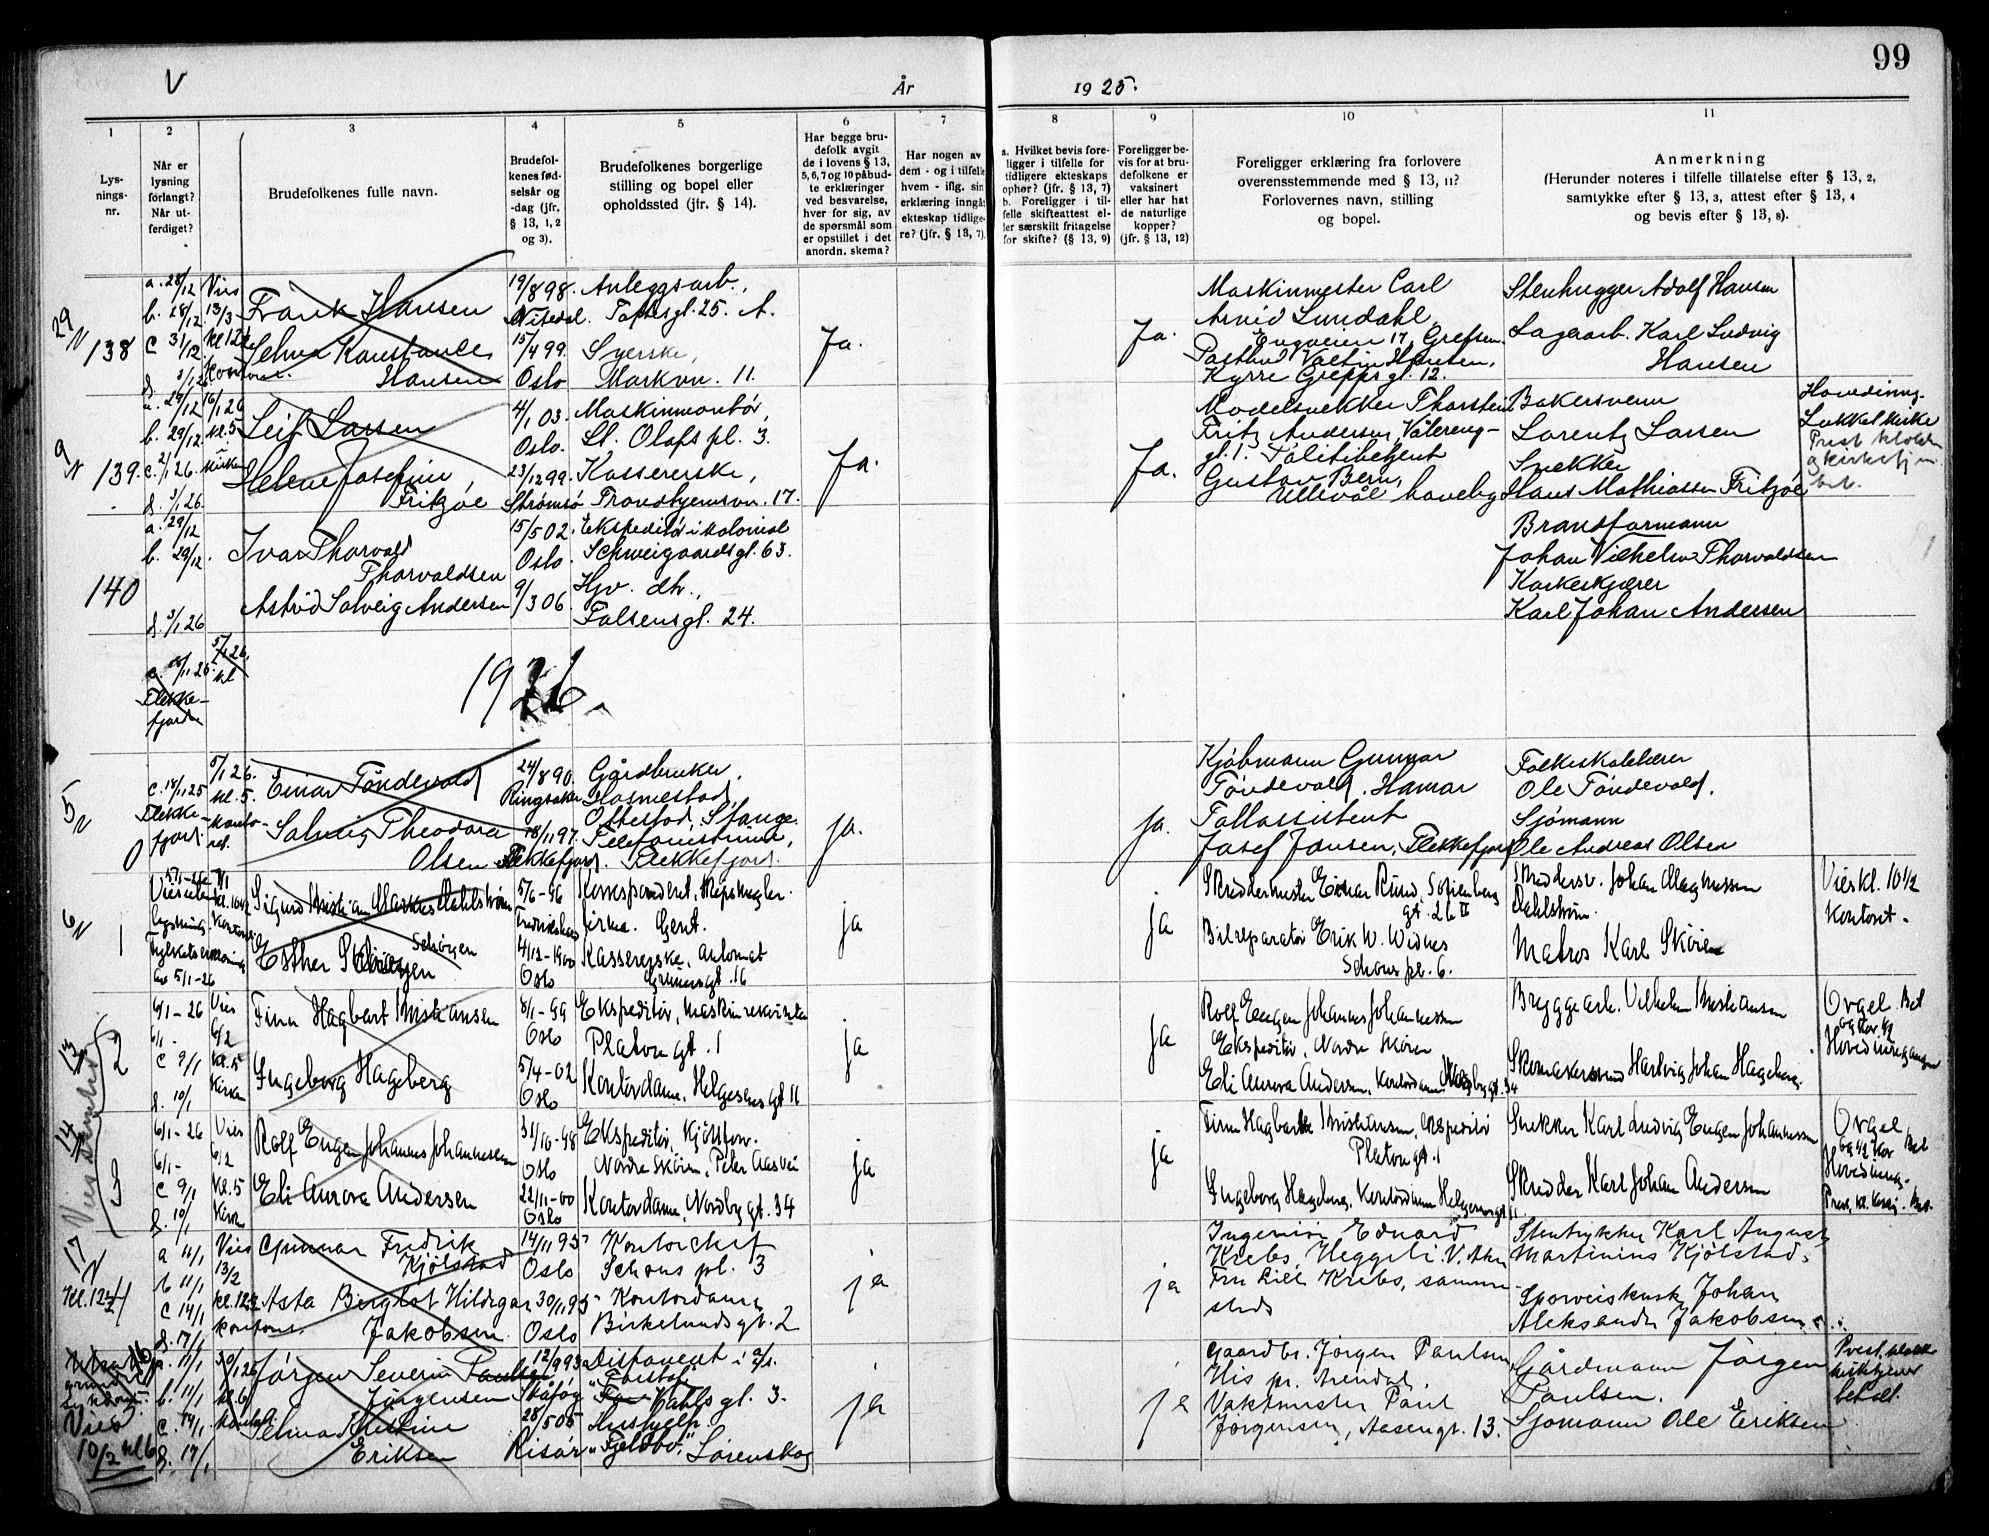 99
V
År
1925.
1
2
3
4
5
6
7
8
9
10
11
Lys-
nings-
nr.
Når er
lysning
forlangt?
Når ut-
ferdiget?
Brudefolkenes fulle navn.
Brudefol-
kenes fød-
selsår og
-dag (jfr.
§ 13, 1, 2
og 3).
Brudefolkenes borgerlige
stilling og bopel eller
opholdssted (jfr. § 14).
Har begge bru-
defolk avgit
de i lovens § 13,
5, 6, 7 og 10 påbud-
te erklæringer
ved besvarelse,
hver for sig, av
de spørsmål som
er opstillet i det
anordn. skema?
Har nogen av
dem - og i tilfelle
hvem - iflg. sin
erklæring inngåt
ekteskap tidlige-
re? (jfr. § 13, 7).
a. Hvilket bevis fore-
ligger i tilfelle for
tidligere ekteskaps
ophør? (jfr. § 13, 7)
b. Foreligger i til-
felle skifteattest el-
ler særskilt fritagelse
for skifte? (§ 13, 9)
Foreligger be-
vis for at bru-
defolkene er
vaksinert
eller har hat
de naturlige
kopper?
(jfr. § 13, 12)
Foreligger erklæring fra forlovere
overensstemmende med § 13, 11?
Forlovernes navn, stilling
og bopel.
Anmerkning
(Herunder noteres i tilfelle tillatelse efter § 13, 2,
samtykke efter § 13, 3, attest efter § 13, 4
og bevis efter § 13, 8).
29/N
138
a. 28/12
b. 28/12
c 31/12
Vies
13/3
Frank Hansen
Selma Konstance
Hansen
19/8 98.
Nitedal.
15/4 99.
Oslo
Anleggsarb.,
Toftesgt. 25. A.
Syerske,
Markvn. 11.
Ja.
Ja.
Maskinmester Carl
Arvid Lundahl,
Engveien 17, Grefsen.
Postbud Valtin Hansen,
Kyrre Greppsgt. 12.
Stenhugger Adolf Hansen
Lagerarb. Karl Ludvig
Hansen
9/N
139.
a. 29/12
b. 29/12.
c. 2/1 26.
d. 3/1 26.
16/1 26
kl. 5
Kirken
Leif Larsen
Helene Josefine
Fritzøe
4/1 03.
Oslo.
23/12 99.
Strømsø
Maskinmontør,
St. Olafs pl. 3.
Kassererske,
Trondhjemsvn. 17.
Ja.
Ja.
Modelsnekker Thorstein
Fritz Andersen, Vålereng-
gt. 1. Politibetjent
Gustav Bern,
Ullevål haveby
Bakersvenn
Lorentz Larsen
Snekker
Hans Mathiassen Fritzøe
Hovedinng.
Lukket kirke
Prest klokker
og kirketjen
bet.
140
a. 29/12
b. 29/12.
d. 3/1 26
Ivar Thorvald
Thorvaldsen
Astrid Solveig Andersen
15/5 02.
Oslo.
9/3 06.
Ekspeditør i kolonial
Schweigaardsgt. 63.
Hjv. dtr.,
Falsensgt. 24.
Brandformann
Johan Vilhelm Thorvaldsen
Karkeskjærer
Karl Johan Andersen
Flekke-
fjord
5/1 26.
kl
1926.
5/N
0
c. 18/11 25
Flekke-
fjord.
5/1 26.
kl. 5.
Konto-
ret.
Einar Töndevold
Solveig Theodora
Olsen
24/8 90.
Ringsaker
18/11 97.
Flekkefjord.
Gårdbruker,
Hosmestad,
Ottestad, Stange.
Telefonistinne,
Flekkefjord.
ja.
ja.
Kjøbmann Gunnar
Töndevold, Hamar
Tollassistent
Josef Jansen, Flekkefjord
Folkeskolelærer
Ole Töndevold.
Sjömann
Ole Andreas Olsen
6/N
1
5/1-26
Vies uten
lysning.
av 5/1-26
kl. 10 1/2
Kontoret
Sigurd Kristian Markus Dahlstrøm
Esther
5/6-96
Fredrikshald
4/12-1900
Oslo
Korrespondent, Skipsmegler-
firma. Gent.
Kassererske, Automat
Grünersgt. 16
ja
ja
Skreddermester Einar Rund, Sofienberg
gt. 26 II
Bilreparatør Erik W. Widnes
Schous pl. 6.
Skreddersv. Johan Magnussen
Dahlstrøm.
Matros Karl Skören
Vies kl. 10 1/2
Kontoret.
13/N
2
6/1-26
6/1-
c 9/1
d. 10/1
Vies
6/2
kl. 5
Kirken
Finn Hagbart Kristiansen
Ingeborg Hageberg
8/1-99
Oslo
5/4-02
Oslo
Ekspeditør, maskinrekvisita
Platou gt. 1
Kontordame, Helgesens gt 11
ja
ja
Rolf Eugen Johannes Johannessen
Ekspeditør, Nordre Skøien
Eli Aurora Andersen, Kontordame, Nordbygt. 34
Bryggearb. Vilhelm Kristiansen
Skomakersvend Hartvig Johan Hageberg.
Orgel. Bet
Hovedinngangen
Vies samtidig
14/N
3
6/1-26
6/1-
c 9/1
d. 10/1
Vies
6/2
kl. 5
Kirken
Rolf Eugen Johannes Johannessen
Eli Aurora Andersen
31/10-98
Oslo
22/11-00
Oslo
Ekspeditør, Kjøttforr.
Nordre Skøien, Peter Aasvei
Kontordame, Nordby gt. 34
ja
ja
Finn Hagbart Kristiansen, Ekspeditør
Platou gt. 1
Ingeborg Hageberg, Kontordame Helgesens gt 11
Snekker Karl Ludvig Eugen Johannessen
Skredder Karl Johan Andersen
Orgel
Bet
Hovedinng.
17/N
4
a 11/1
b 11/1
c 14/1
d. 17/1
Vies
13/2
kl. 12 1/2
kontoret.
Gunnar Fredrik
Kjölstad
Asta Bergliot Hildegar
Jakobsen.
14/11 95
Oslo
30/11 95
Oslo
Kontorchef
Schous pl. 3
Kontordame
Birkelundsgt. 2
ja
ja
Ingeniör Edvard
Krebs, Heggeli V. Aker
Fru Lill Krebs, samme
steds
Stentrykker Karl August
Martinius Kjölstad.
Sporveiskusk Johan
Aleksander Jakobsen
Vies
10/2 kl 6
a. 11/1
b. 11/1
c. 14/1
d. 17/1
kl. 6
Jörgen Severin Paulsen
Jörgensen
Selma Kristine
Eriksen
12/9 93
Skåtöy
28/5 05
Risör
Disponent i a/s.
Dahls gt. 3.
Hushjelp
"Fjeldbo," Lörenskog
ja
ja
Gaardbr. Jörgen Paulsen
His pr. Arendal.
Vaktmester Paul
Jörgensen, Aasengt. 13.
Gårdmann Jörgen
Paulsen.
Sjömann Ole Eriksen
Prest, klokker
kirketjener
betalt